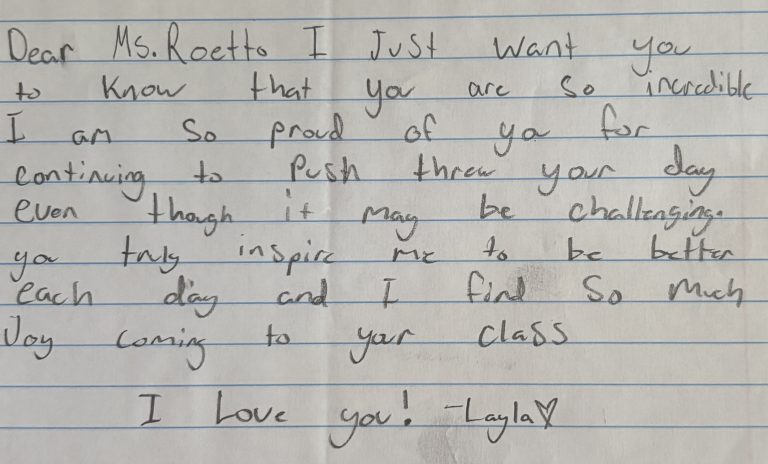 Dear Ms. Roetto I Just want you
to know that you are so incredible
I am so proud of you for
continuing to push threw your day
even though it may be challenging.
you truly inspire me to be better
each day and I find so much
Joy coming to your class
I Love you! -Layla♡